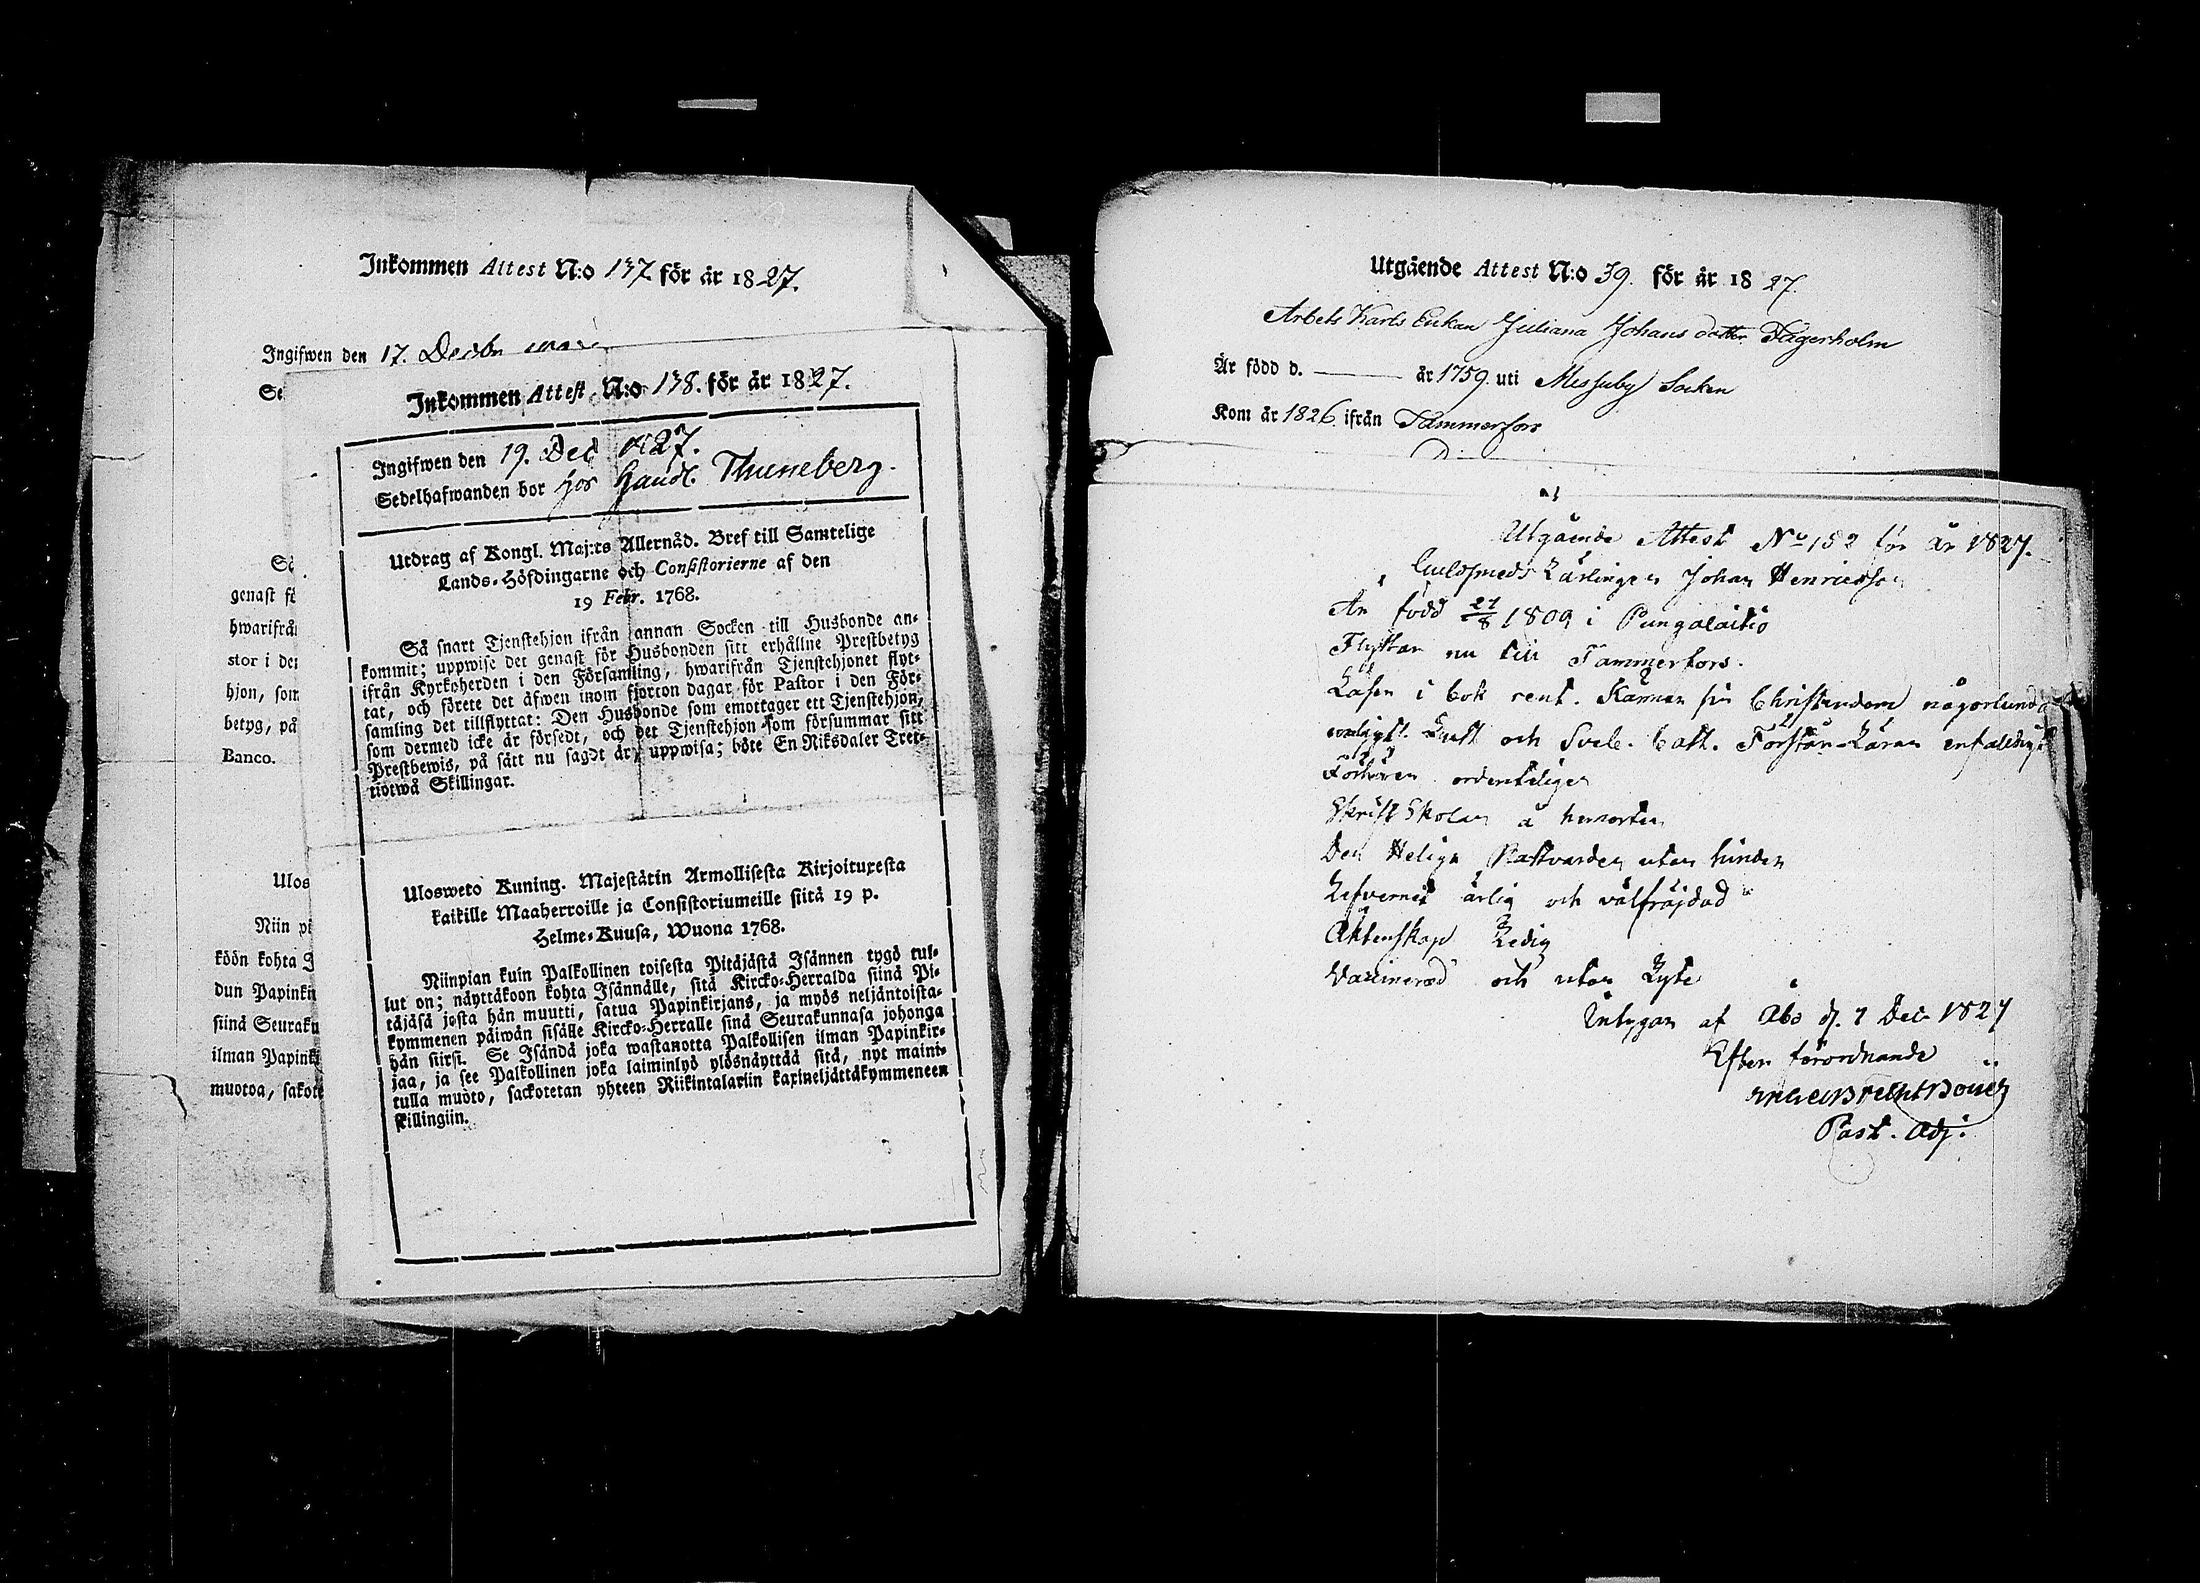 Inkommen Attest N:o 137 för år 1827.
Ingifwen den 17. Decbr
Se
Så
genast fö
hwarifrån
stor i den
hjon, som
betyg, på
Banco.
Ulos
Niin pi
köön kohta I
dun Papinkir
siinä Seuraku
ilman Papinki
muotoa, sakote
Inkommen Attest, N:o 138. för år 1827.
Ingifwen den 19. Dec 1827.
Sedelhafwanden bor hos Handl. Thuneberg.
Utdrag af Kongl. Maj:ts Allernåd. Bref till Samtelige
Lands-Höfdingarne och Consistorierne af den
19 Febr. 1768.
Så snart Tjenstehjon ifrån annan Socken till Husbonde an-
kommit; uppwise det genast för Husbonden sitt erhållne Prestbetyg
ifrån Kyrkoherden i den Församling, hwarifrån Tjenstehjonet flyt-
tat, och förete det äfwen inom fjorton dagar för Pastor i den För-
samling det tillflyttat: Den Husbonde som emottager ett Tjenstehjon,
som dermed icke är försedt, och det Tjenstehjon som försummar sitt
Prestbewis, på sätt nu sagdt är, uppwisa; böte En Riksdaler Tret-
tiotwå Skillingar.
Ulosweto Kuning. Majestätin Armollisesta Kirjoituxesta
kaikille Maaherroille ja Consistoriumeille siitä 19 p.
Helme-Kuusa, Wuona 1768.
Niinpian kuin Palkollinen toisesta Pitäjästä Isännen tygö tul-
lut on; näyttäkoon kohta Isännälle, sitä Kircko-Herralda siinä Pi-
täjäsä josta hän muutti, saatua Papinkirjans, ja myös neljäntoista-
kymmenen päiwän sisälle Kircko-Herralle sinä Seurakunnasa johonga
hän siirsi. Se Isändä joka wastanotta Palkollisen ilman Papinkir-
jaa, ja see Palkollinen joka laiminlyö ylösnäyttää sitä, nyt maini-
tulla muoto, sackotetan yhteen Riikintalariin kaxineljättäkymmeneen
skillingiin.
Utgående Attest N:o 39. för år 1827.
Arbets Karls Enkan Juliana Johans dotter Fagerholm
Är född d. — år 1759. uti Messuby Socken
Kom år 1826. ifrån Tammerfors
Utgående Attest No 152 för år 1827.
Guldsmeds Lärlingen Johan Henricsson
Är född 27/8 1809 i Pungalaitio
Flyttar nu till Tammerfors.
Läser i bok rent. Kannar sin Christendom någorlunda
Luth och Sveb. Cat. Förstår Läran enfaldigt
Förhören ordenteligen
Skrift Skolan å hemorten
Den Heliga Nattvarden utan hinder
Lefvernet ärlig och välfräjdad
Äktenskap Ledig
Vaccinerad och utan Lyte
Intygar af Åbo d. 7 Dec 1827
Efter förordnande
Past. Adj: